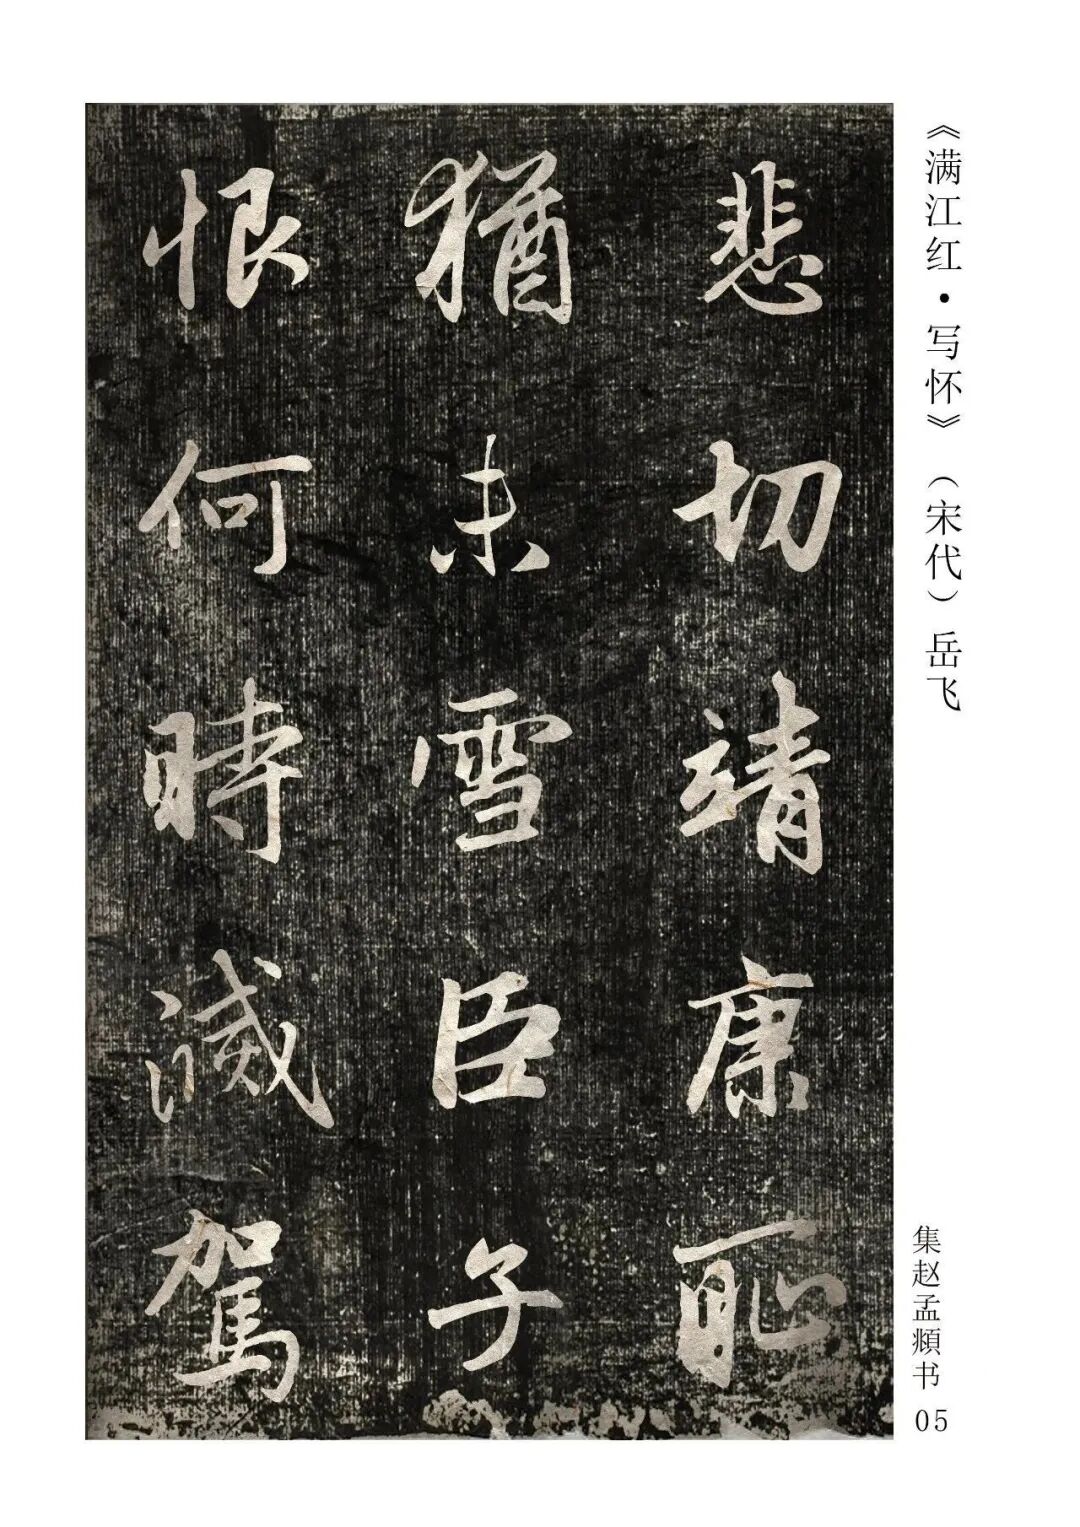 《满江红·写怀》（宋代）岳飞
悲切靖康耻
猶未雪臣子
恨何時滅駕
集赵孟頫书 05